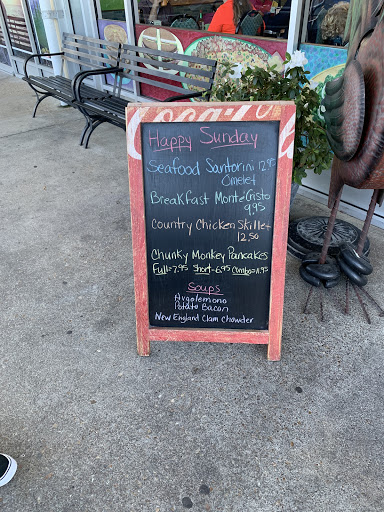 Coca-Co
Happy Sunday
Seafood Santorini 12.95
Omelet
Breakfast Monte Cristo
9.95
Country Chicken Skillet
12.50
Chunky Monkey Pancakes
Full=7.95 Short=6.95 Combo=11.95
Soups
Avgolemono
Potato Bacon
New England Clam Chowder